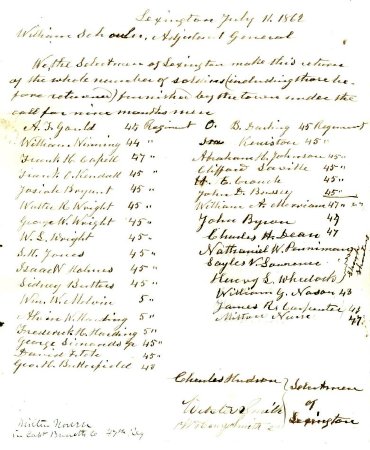 Lexington July 11. 1862
William Schouler, Adjutant General
We, the Selectmen of Lexington make this return
of the whole number of soldiers (including those be-
fore returned) furnished by the town under the
call for nine months men
A. F. Gaulds 44 Regiment
William Winning 44 "
Frank H. Capell 47 "
Frank C. Kendall 45 "
Josiah Bryant 45 "
Walter R. Wright 45 "
George W. Wright 45 "
W. L. Wright 45 "
G. H. Jones 45 "
Isaac N. Holmes 45 "
Sidney Butters 45 "
Wm. W. Melvin 5 "
Alvin W. Harding 5 "
Frederick H. Harding 5 "
George Simonds Jr 45 "
David F. Tole 45 "
Geo. H. Butterfield 43 "
O. B. Darling 45 Regiment
Keniston 45 "
Abraham H. Johnson 45 "
Clifford Saville 45 "
H. E. Crouch 45 "
John E. Bussey 45 "
William A. Merriam 47 "
John Byron 47
Charles H. Dean 47
Nathaniel W. Penniman
Sayles V. Lawrence
Henry L. Wheelock
William G. Nason 43
James R. Carpenter 43
Milton Nurse 47
Charles Hudson
Webster Smith
Selectmen
of
Lexington
Milton Nourse
in Capt Burnetts Co 47th Reg